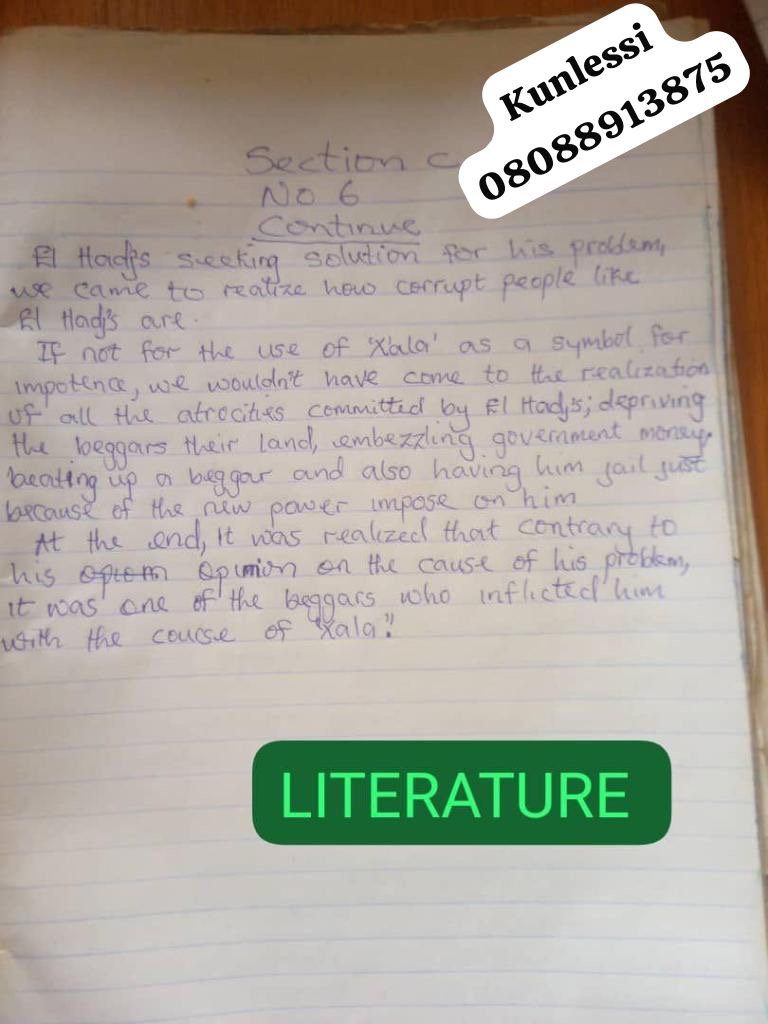 Kunlessi
08088913875
Section C
No 6
Continue
El Hadj's seeking solution for his problem,
we came to realize how corrupt people like
El Hadj's are.
If not for the use of 'Xala' as a symbol for
impotence, we wouldn't have come to the realization
of all the atrocities committed by El Hadj's; depriving
the beggars their land, embezzling government money.
beating up a beggar and also having him jail just
because of the new power impose on him
At the end, it was realized that contrary to
his opinion on the cause of his problem,
it was one of the beggars who inflicted him
with the course of "Xala".
LITERATURE